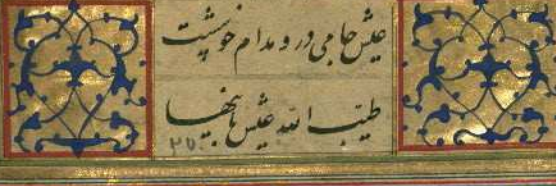 عیش جامی درو مدام خوشست
طیب الله عیش بانیها